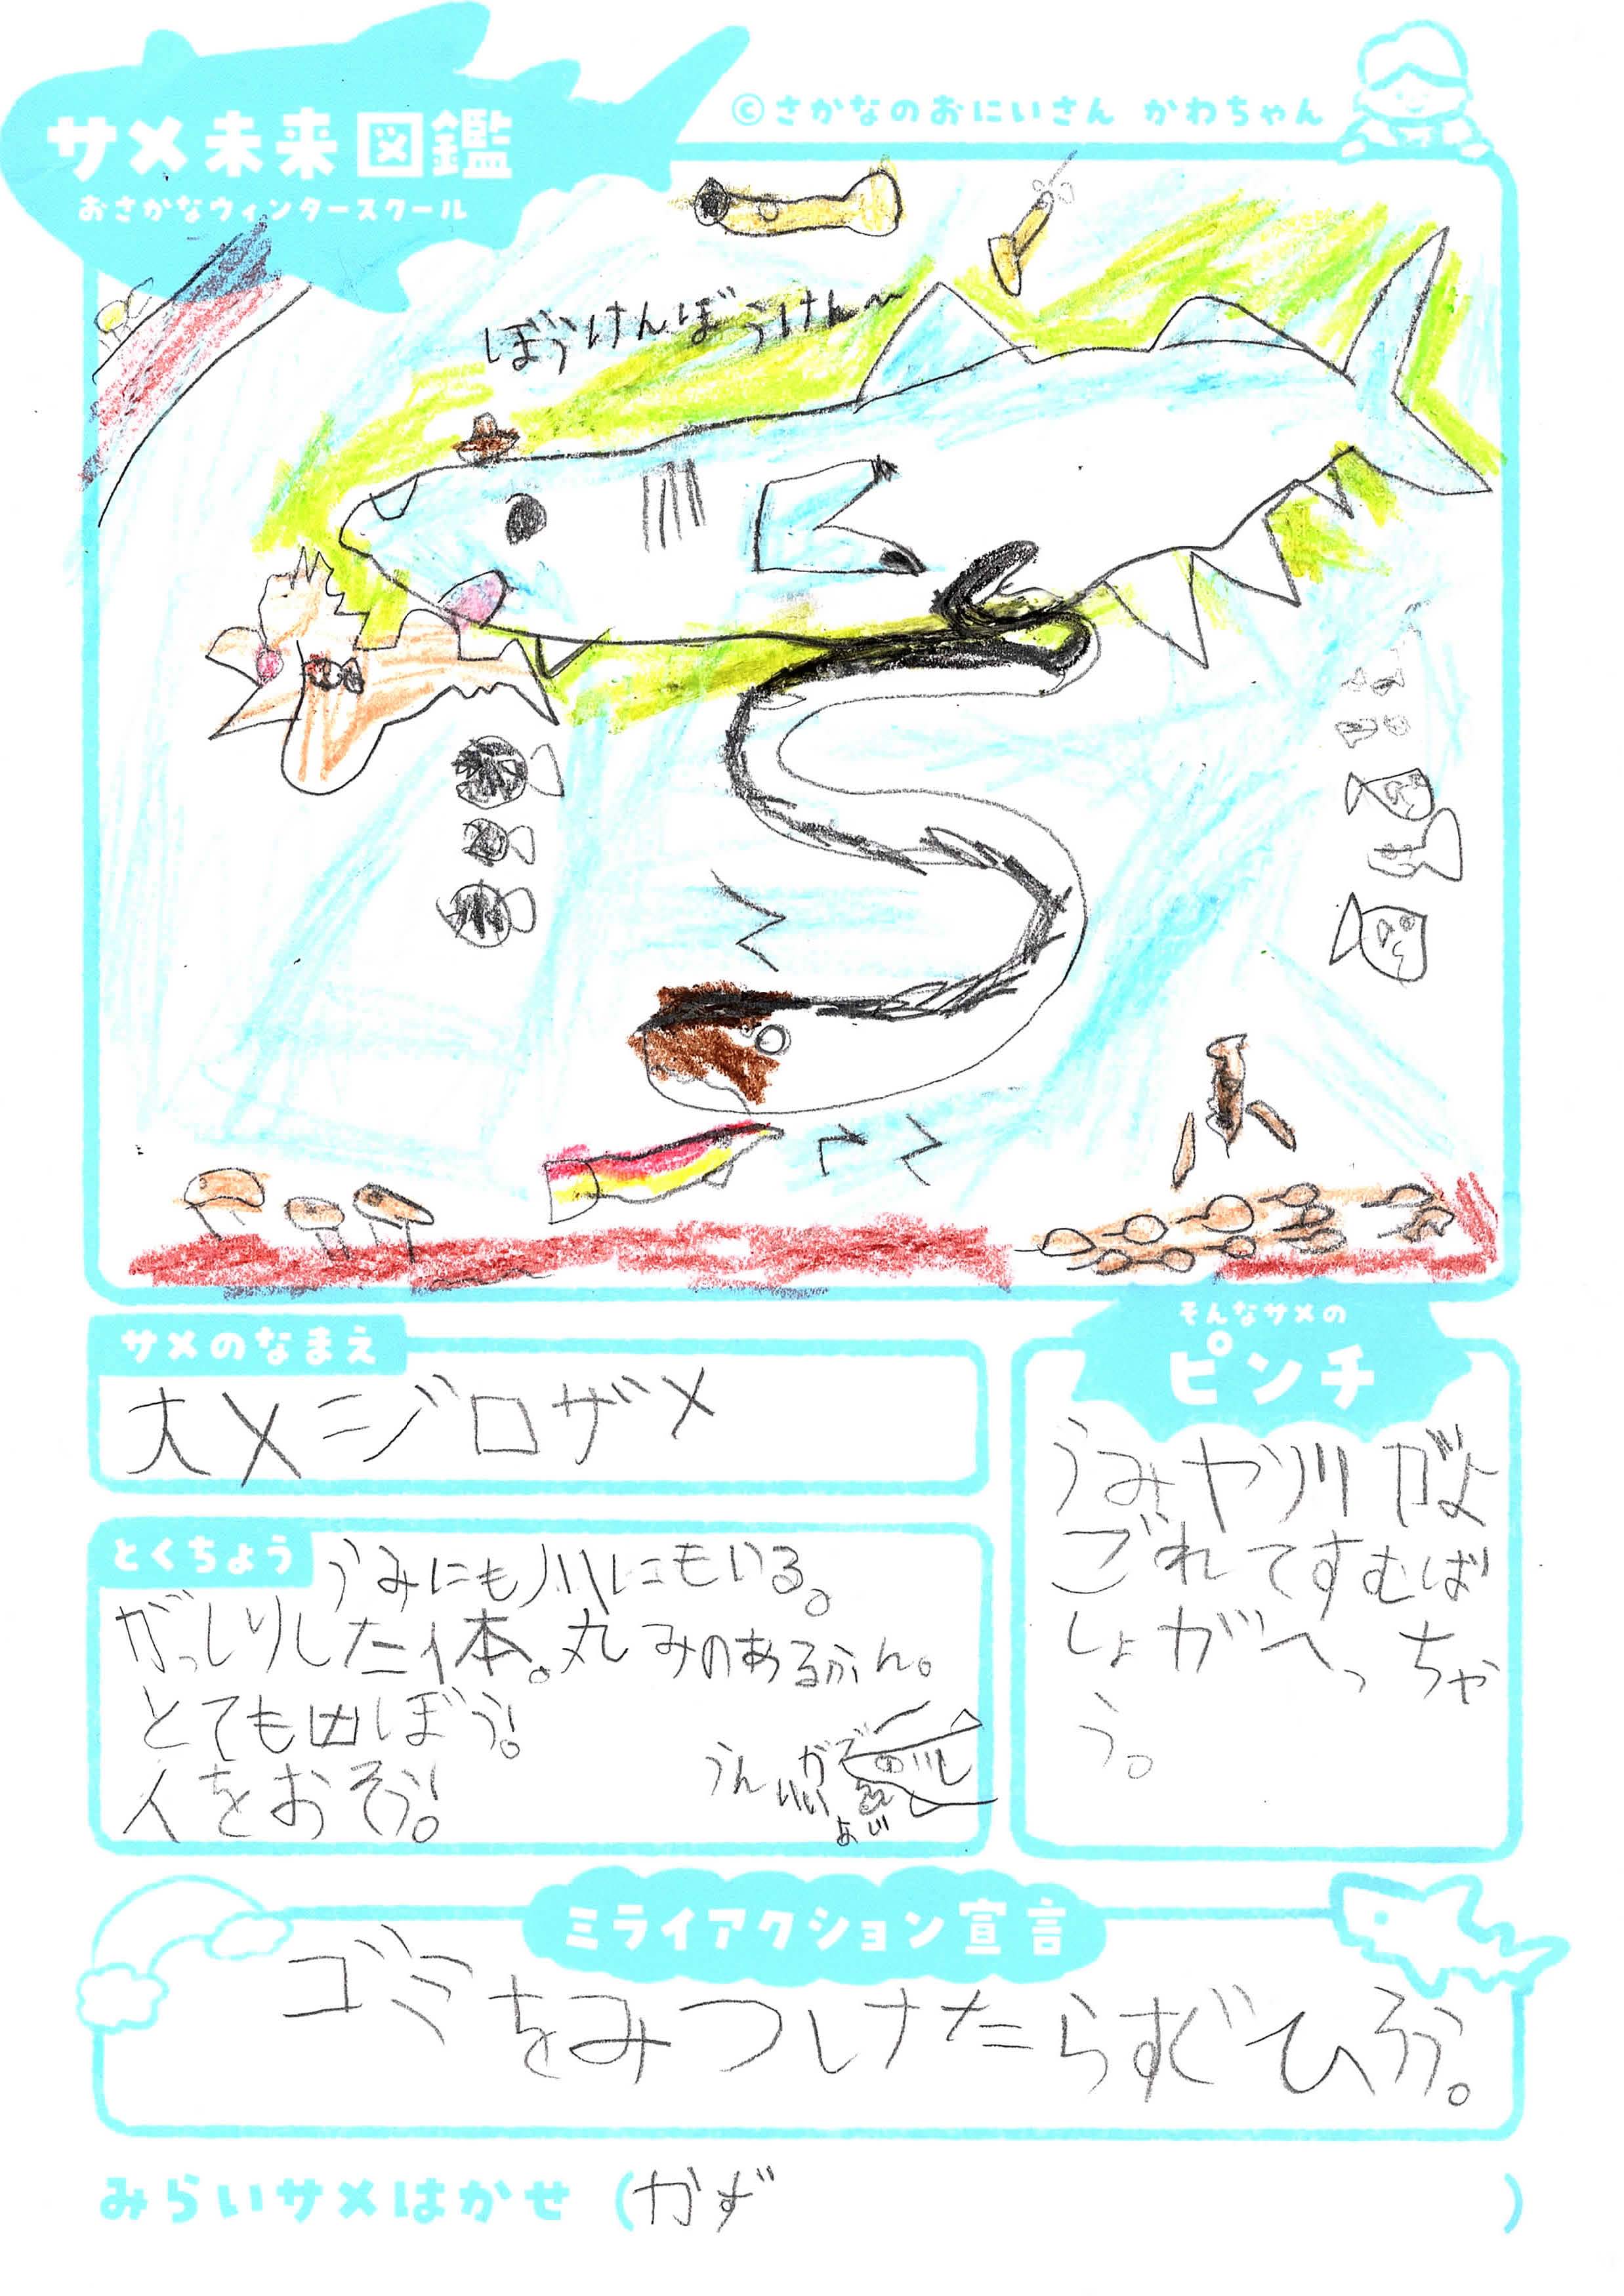 ©さかなのおにいさん かわちゃん
サメ未来図鑑
おさかなウィンタースクール
ぼうけんぼうけん〜
サメのなまえ
大メジロザメ
とくちょう
うみにも川にもいる。
がっしりした体。丸みのあるふん。
とても凶ぼう!。
人をおそう!。
うん
そんなサメの
ピンチ
うみや川がよ
ごれてすむば
しょがへっちゃ
う。
ミライアクション宣言
ゴミをみつけたらすぐひろう。
みらいサメはかせ (かず)